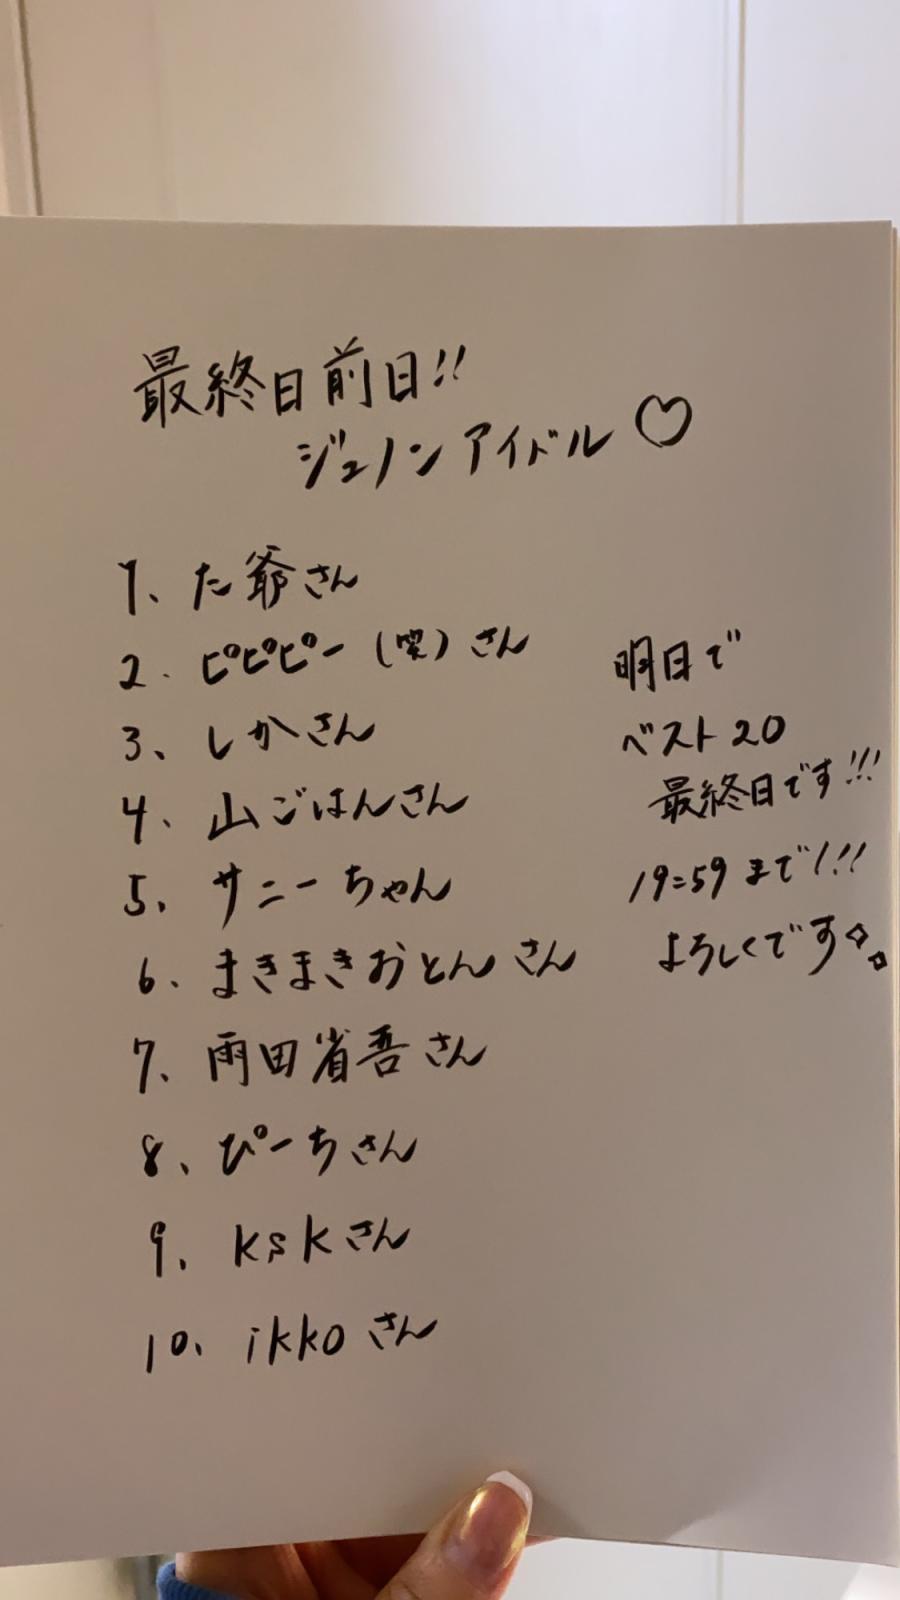 最終日前日!!
ジュノンアイドル♡
1、た爺さん
2、ピピピー(笑)さん
3、しかさん
4、山ごはんさん
5、サニーちゃん
6、まきまきおとんさん
7、雨田省吾さん
8、ぴーちさん
9、kskさん
10、ikkoさん
明日で
ベスト20
最終日です!!!
19:59まで!!!
よろしくです